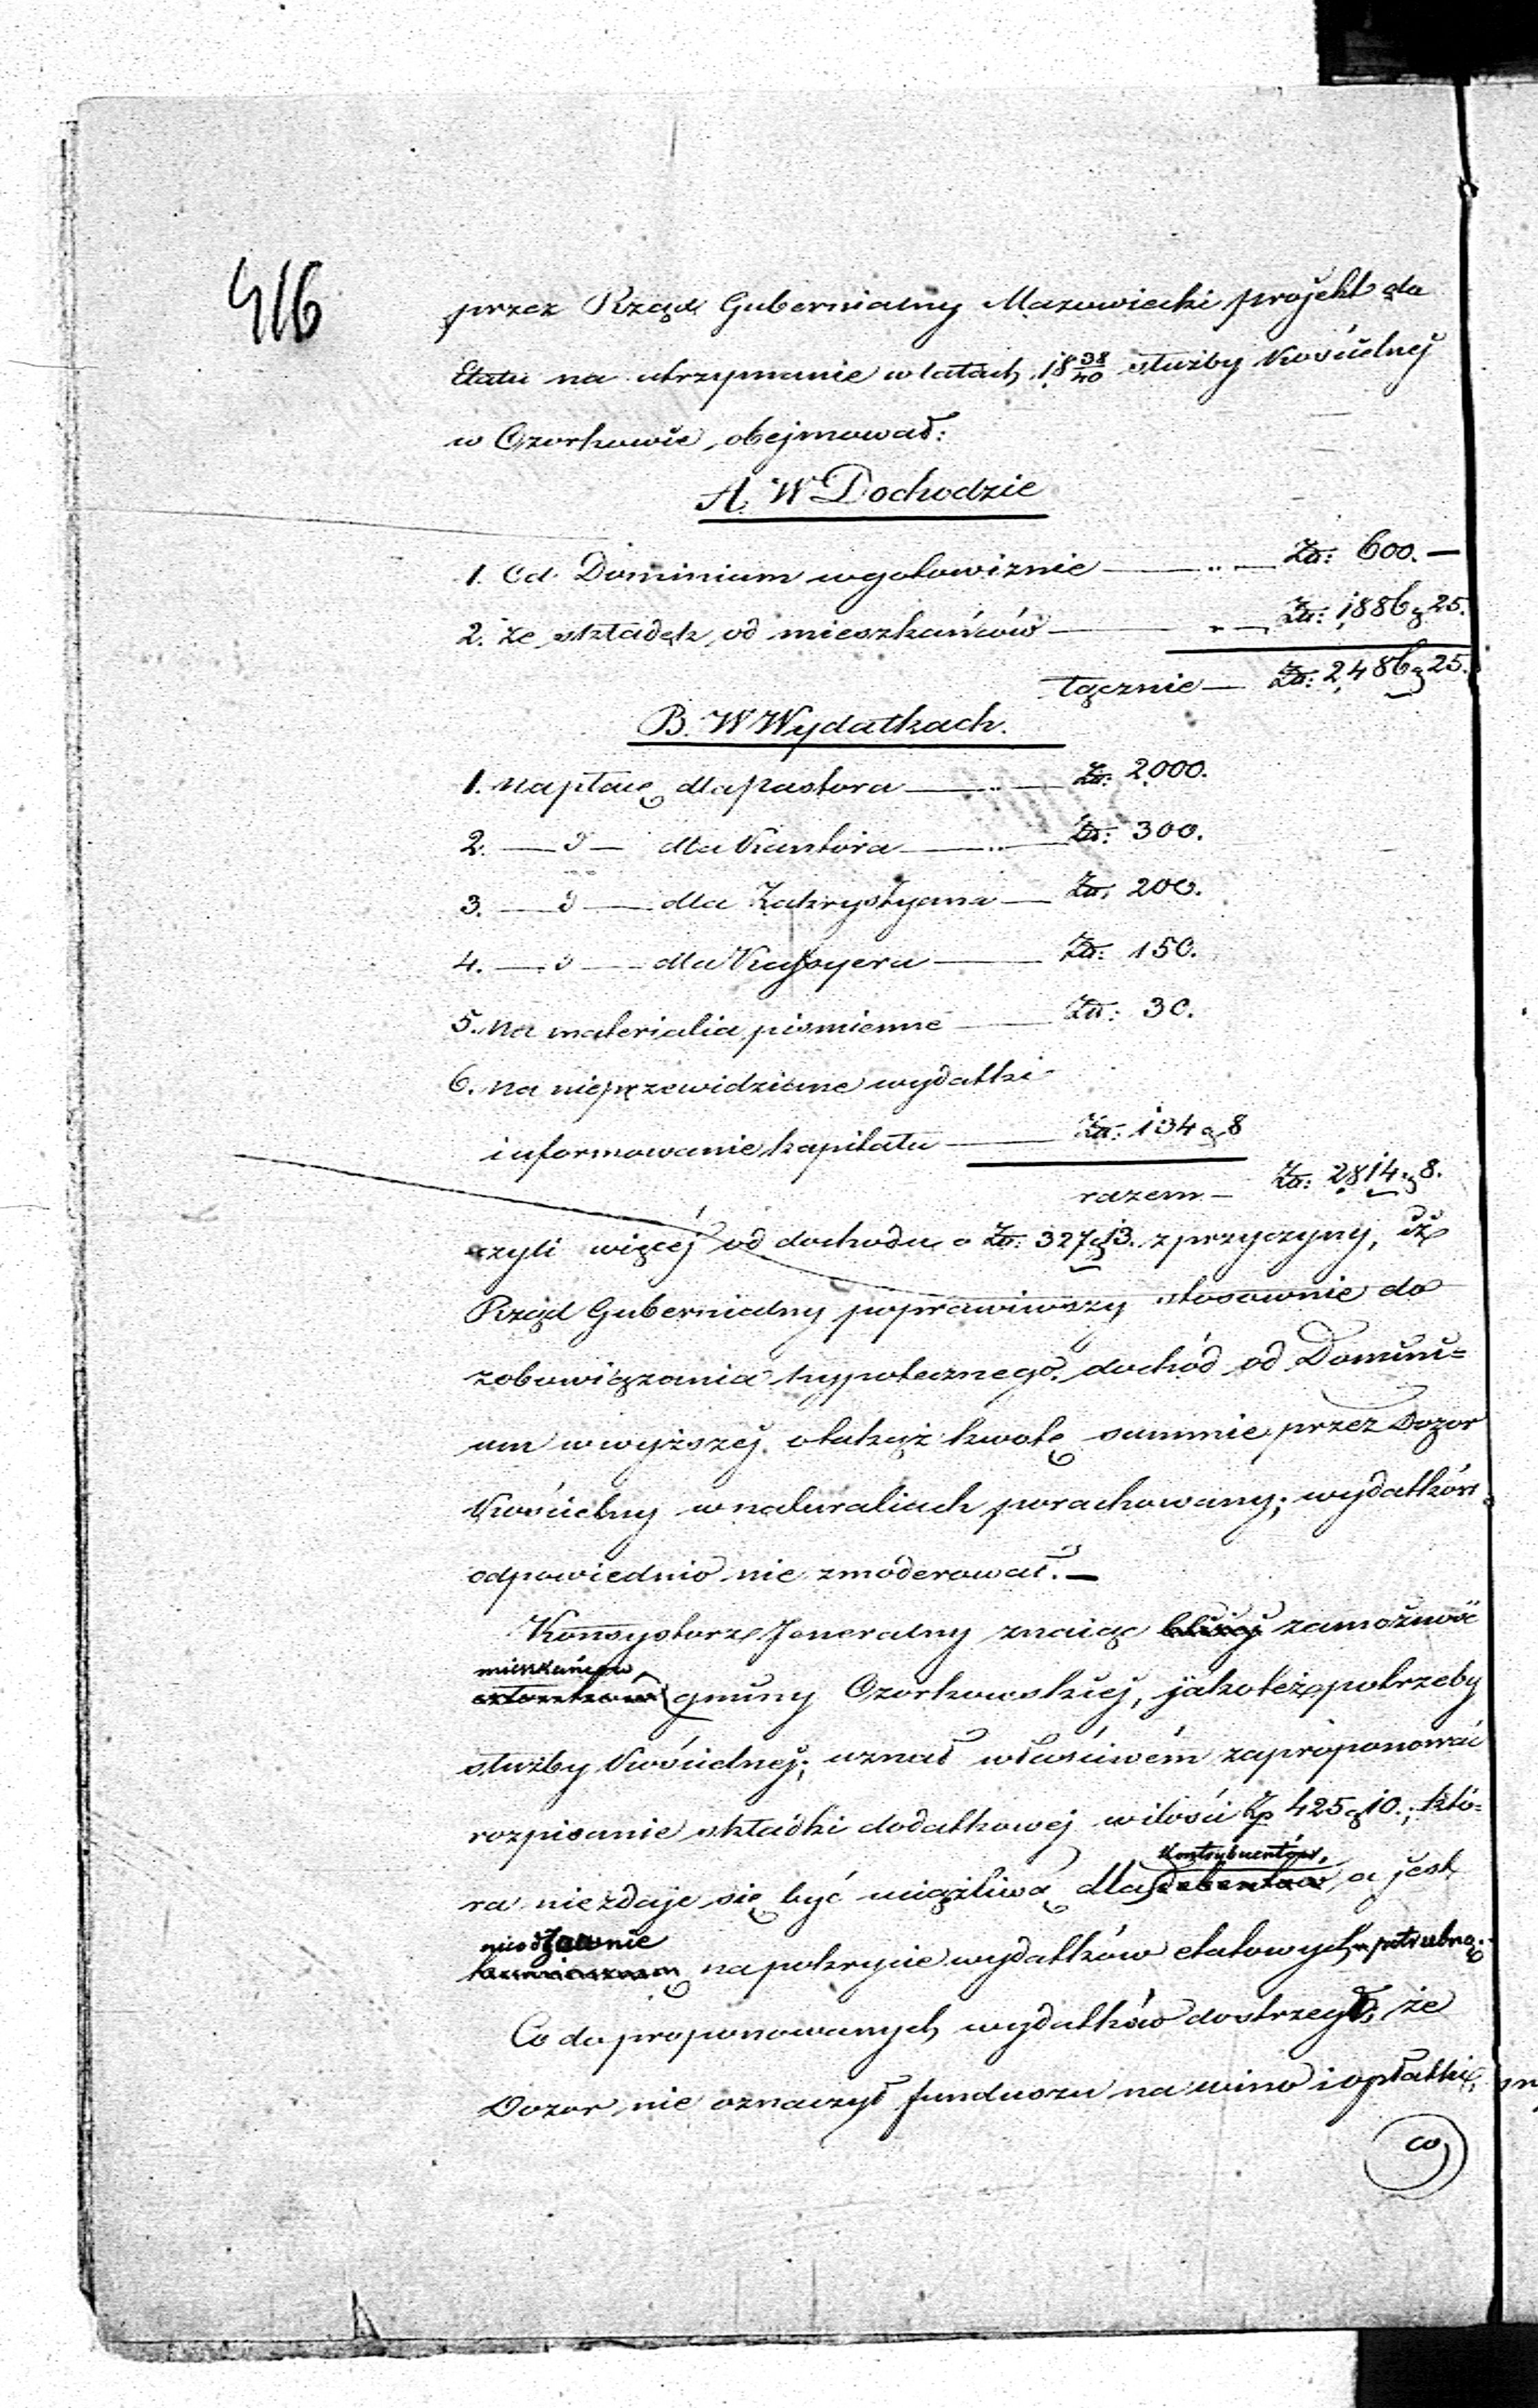 416
przez Rząd Gubernialny Mazowiecki projekt do
Etatu na utrzymanie w latach 18 38/40 służby Kościelnej
w Ozorkowie, obejmował:
A. W Dochodzie
1. Od Dominium w gotowiznie — Zł: 600. —
2. Ze składek od mieszkańców — Zł: 1886 g 25.
łącznie — Zł: 2486 g 25.
B. W Wydatkach.
1. Na płacę dla Pastora — Zł: 2000.
2. — d — dla Kantora — Zł: 300.
3. — d — dla Zakrystyana — Zł: 200.
4. — d — dla Kassyera — Zł: 150.
5. Na materialia piśmienne — Zł: 30.
6. Na nieprzewidziane wydatki
i uformowanie kapitału — Zł: 134 g 8
razem — Zł: 2814 g 8.
czyli więcéj od dochodu o Zł: 327 g 13. z przyczyny, iż
Rząd Gubernialny poprawiwszy stosownie do
zobowiązania hypotecznego dochód od Domini=
um w wyższej o takąż kwotę summie przez Dozor
Kościelny w naturaliach porachowany; wydatków
odpowiednio nie zmoderował. —
Konsystorz Jeneralny znaiąc bliżej zamożność
mieszkańców
członków gminy Ozorkowskiej, jakoteż potrzeby
służby Kościelnej; uznał właściwém zaproponować
rozpisanie składki dodatkowej w ilości Zp 425 g 10.; któ=
Kontrybuentów,
ra niezdaje się być uciążliwą dla debentów, a jest
nieodzownie
na pokrycie wydatków etatowych potrzebną.
Co do proponowanych wydatków dostrzegł, że
Dozor nie oznaczył funduszu na wino i opłatki;
co